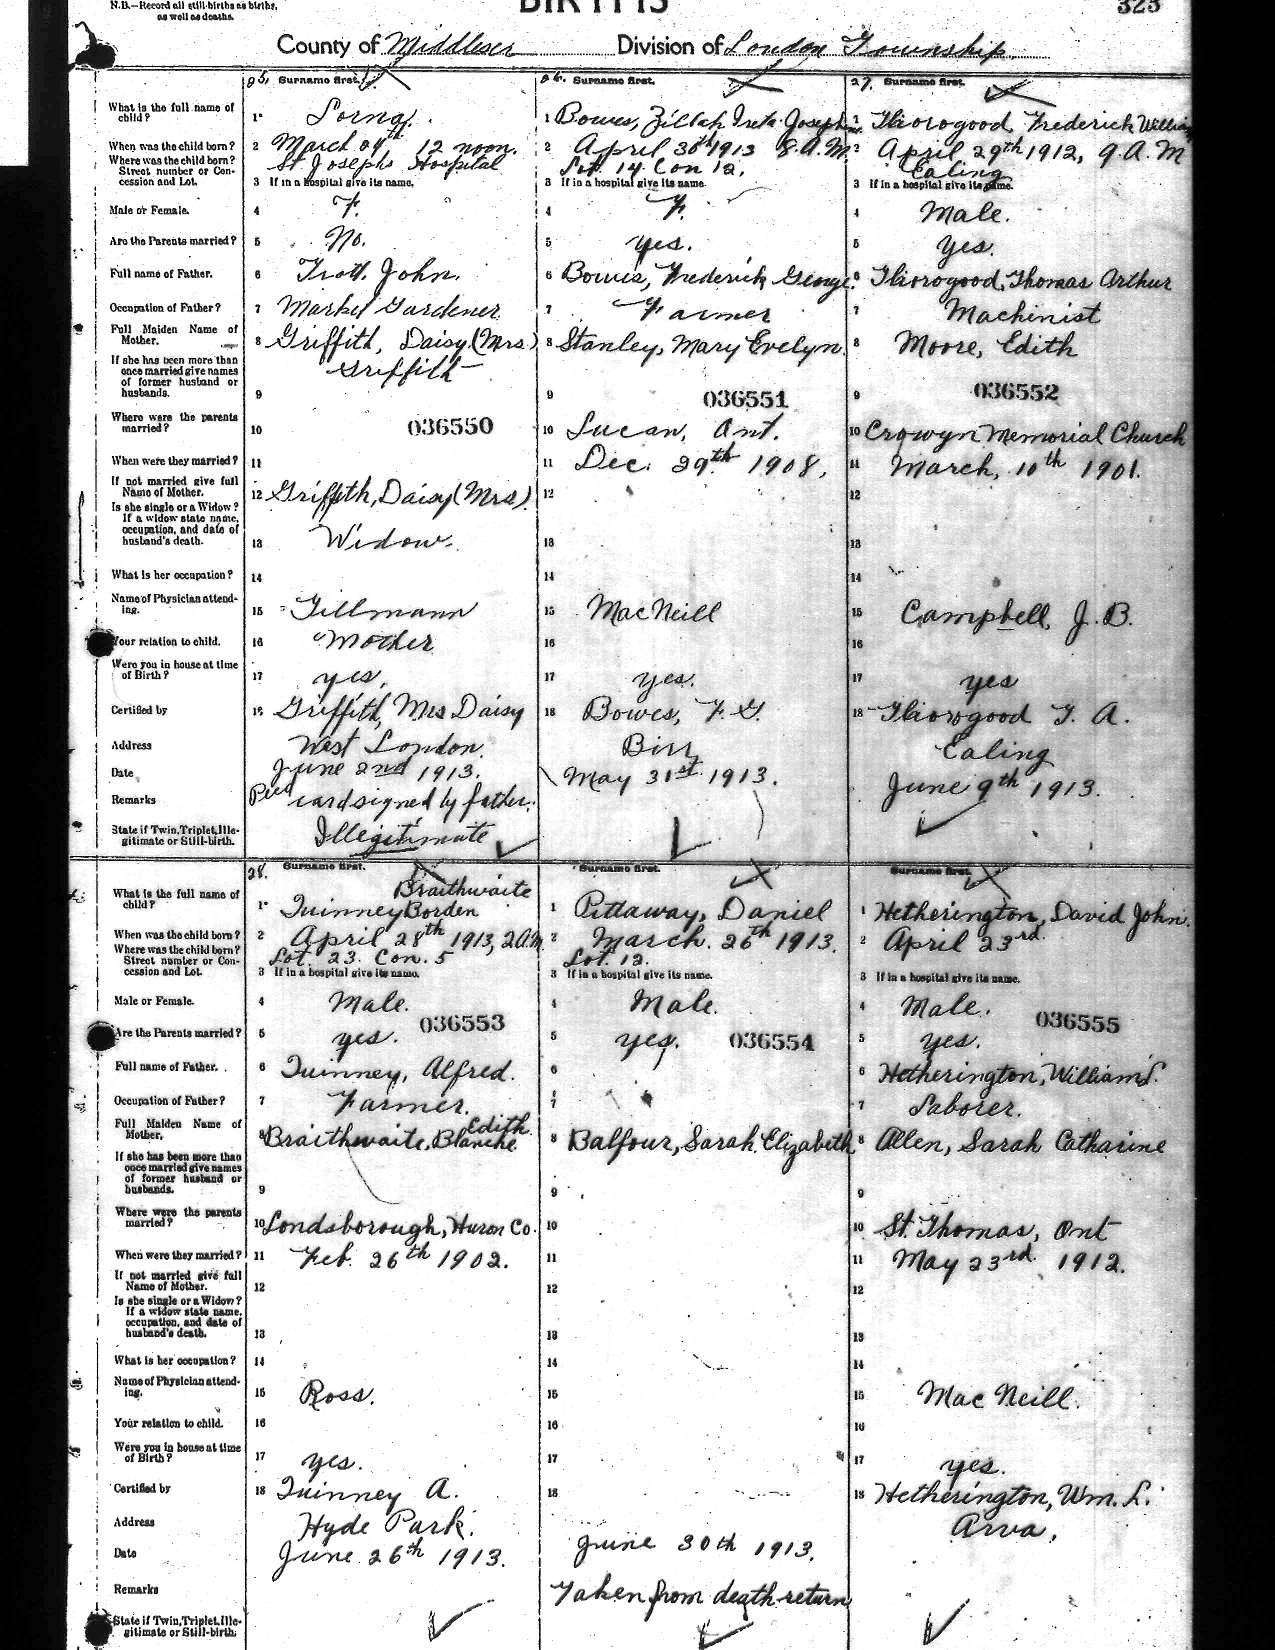 N.B.—Record all still-births as births,
as well as deaths.
BIRTHS
323
County of Middlesex
Division of London Township
25. Surname first.
26. Surname first.
27. Surname first.
What is the full name of child?
1 Lorna.
1 Bowes, Zillah Ireta Josephine
1 Thorogood, Frederick William
When was the child born?
2 March 09th, 12 noon.
2 April 30th 1913 8. A.M.
2 April 29th 1912, 9. A.M
Where was the child born? Street number or Concession and Lot.
St Josephs Hospital
Lot. 14. Con 12.
Ealing
3 If in a hospital give its name.
3 If in a hospital give its name.
3 If in a hospital give its name.
Male or Female.
4 F.
4 F.
4 Male.
Are the Parents married?
5 No.
5 yes.
5 yes.
Full name of Father.
6 Trott. John.
6 Bowes, Frederick George.
6 Thorogood, Thomas Arthur
Occupation of Father?
7 Market Gardener
7 Farmer
7 Machinist
Full Maiden Name of Mother.
8 Griffith, Daisy (Mrs)
8 Stanley, Mary Evelyn.
8 Moore, Edith
If she has been more than once married give names of former husband or husbands.
Griffith
9
9
9
036550
036551
036552
Where were the parents married?
10
10 Lucan, Ont.
10 Crowyn Memorial Church
When were they married?
11
11 Dec. 29th 1908,
11 March, 10th 1901.
If not married give full Name of Mother.
12 Griffith, Daisy (Mrs).
12
12
Is she single or a Widow? If a widow state name, occupation, and date of husband's death.
13 Widow.
13
13
What is her occupation?
14
14
14
Name of Physician attending.
15 Tillmann
15 MacNeill
15 Campbell, J. B.
Your relation to child.
16 Mother
16
16
Were you in house at time of Birth?
17 yes.
17 yes.
17 yes
Certified by
18 Griffith, Mrs Daisy
18 Bowes, F. G.
18 Thorogood T. A.
Address
West London.
Birr
Ealing
Date
June 2nd 1913.
May 31st 1913.
June 9th 1913.
Remarks
card signed by father.
State if Twin, Triplet, Illegitimate or Still-birth.
Illegitimate
28. Surname first.
Surname first.
Surname first.
What is the full name of child?
Braithwaite
1 Quinney Borden
1 Pittaway, Daniel
1 Hetherington, David John.
When was the child born?
2 April 28th 1913, 2 A.M.
2 March. 26th 1913.
2 April 23rd.
Where was the child born? Street number or Concession and Lot.
Lot. 23. Con. 5
Lot. 12.
3 If in a hospital give its name.
3 If in a hospital give its name.
3 If in a hospital give its name.
Male or Female.
4 Male.
4 Male.
4 Male.
036553
036554
036555
Are the Parents married?
5 yes.
5 yes.
5 yes.
Full name of Father.
6 Quinney, Alfred.
6
6 Hetherington, William L.
Occupation of Father?
7 Farmer.
7
7 Laborer.
Full Maiden Name of Mother.
Edith
8 Braithwaite, Blanche.
8 Balfour, Sarah Elizabeth
8 Allen, Sarah Catharine
If she has been more than once married give names of former husband or husbands.
9
9
9
Where were the parents married?
10 Londsborough, Huron Co.
10
10 St. Thomas, Ont
When were they married?
11 Feb. 26th 1902.
11
11 May 23rd 1912.
If not married give full Name of Mother.
12
12
12
Is she single or a Widow? If a widow state name, occupation, and date of husband's death.
13
13
13
What is her occupation?
14
14
14
Name of Physician attending.
15 Ross.
15
15 Mac Neill.
Your relation to child.
16
16
16
Were you in house at time of Birth?
17 yes.
17
17 yes.
Certified by
18 Quinney A.
18
18 Hetherington, Wm. L.
Address
Hyde Park.
Arva,
Date
June 26th 1913.
June 30th 1913.
Remarks
Taken from death return
State if Twin, Triplet, Illegitimate or Still-birth.